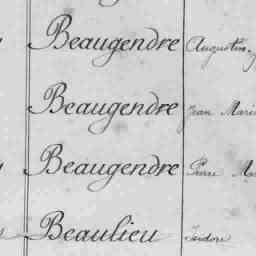 Beaugendre Augustin
Beaugendre Jean Marie
Beaugendre Pierre
Beaulieu Isidore